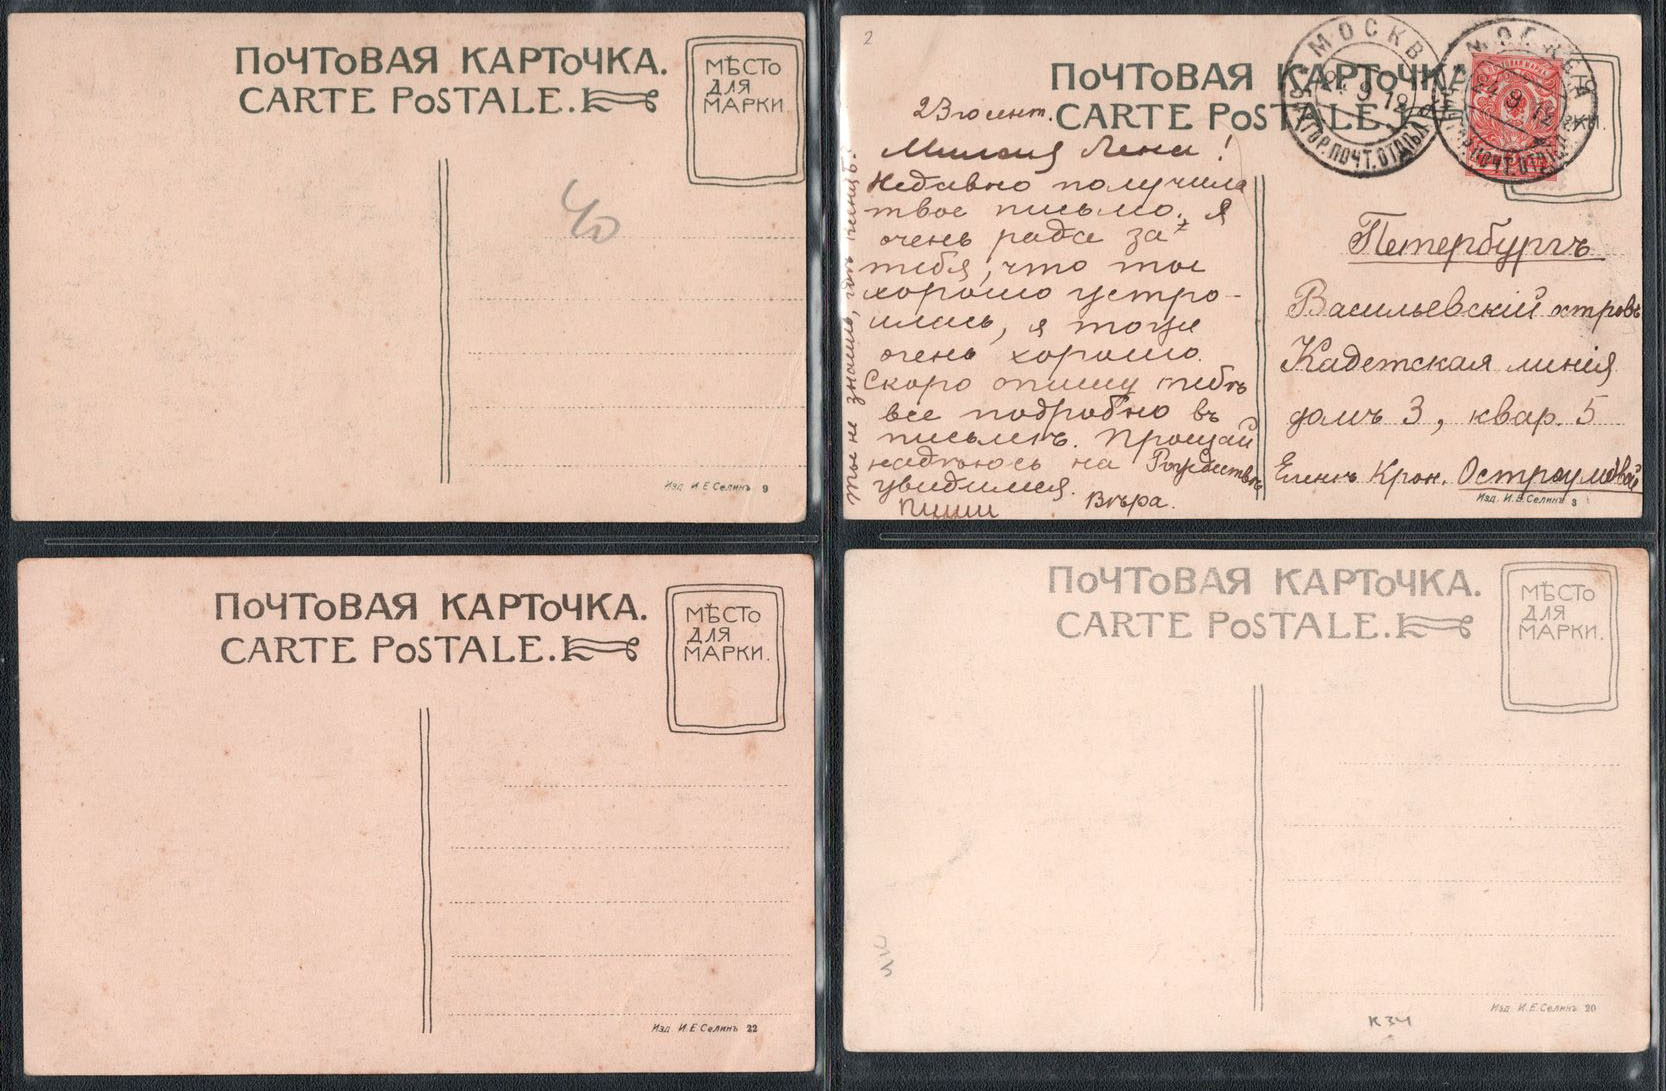 ПОЧТОВАЯ КАРТОЧКА.
CARTE POSTALE.
МѢСТО
ДЛЯ
МАРКИ.
40
Изд. И.Е.Селинъ 9
2
ПОЧТОВАЯ КАРТОЧКА.
CARTE POSTALE.
МОСКВА
24 9 12
ГОР.ПОЧТ.ОТДѢЛ.
24 9 12
23го сент.
Милая Лена!
Недавно получила
твое письмо. Я
очень рада за
тебя, что ты
хорошо устро-
илась, я тоже
очень хорошо.
Скоро опишу тебѣ
все подробно въ
письмѣ. Прощай
надѣюсь на Рождествѣ
увидимся.
Пиши Вѣра.
ты не знаешь, гдѣ
Петербургъ
Васильевскій островъ
Кадетская линія
домъ 3, квар. 5
Еленѣ Крон. Остроумовой
Изд. И.Е.Селинъ 3
ПОЧТОВАЯ КАРТОЧКА.
CARTE POSTALE.
МѢСТО
ДЛЯ
МАРКИ.
Изд. И.Е.Селинъ 22
ПОЧТОВАЯ КАРТОЧКА.
CARTE POSTALE.
МѢСТО
ДЛЯ
МАРКИ.
Изд. И.Е.Селинъ 20
К34